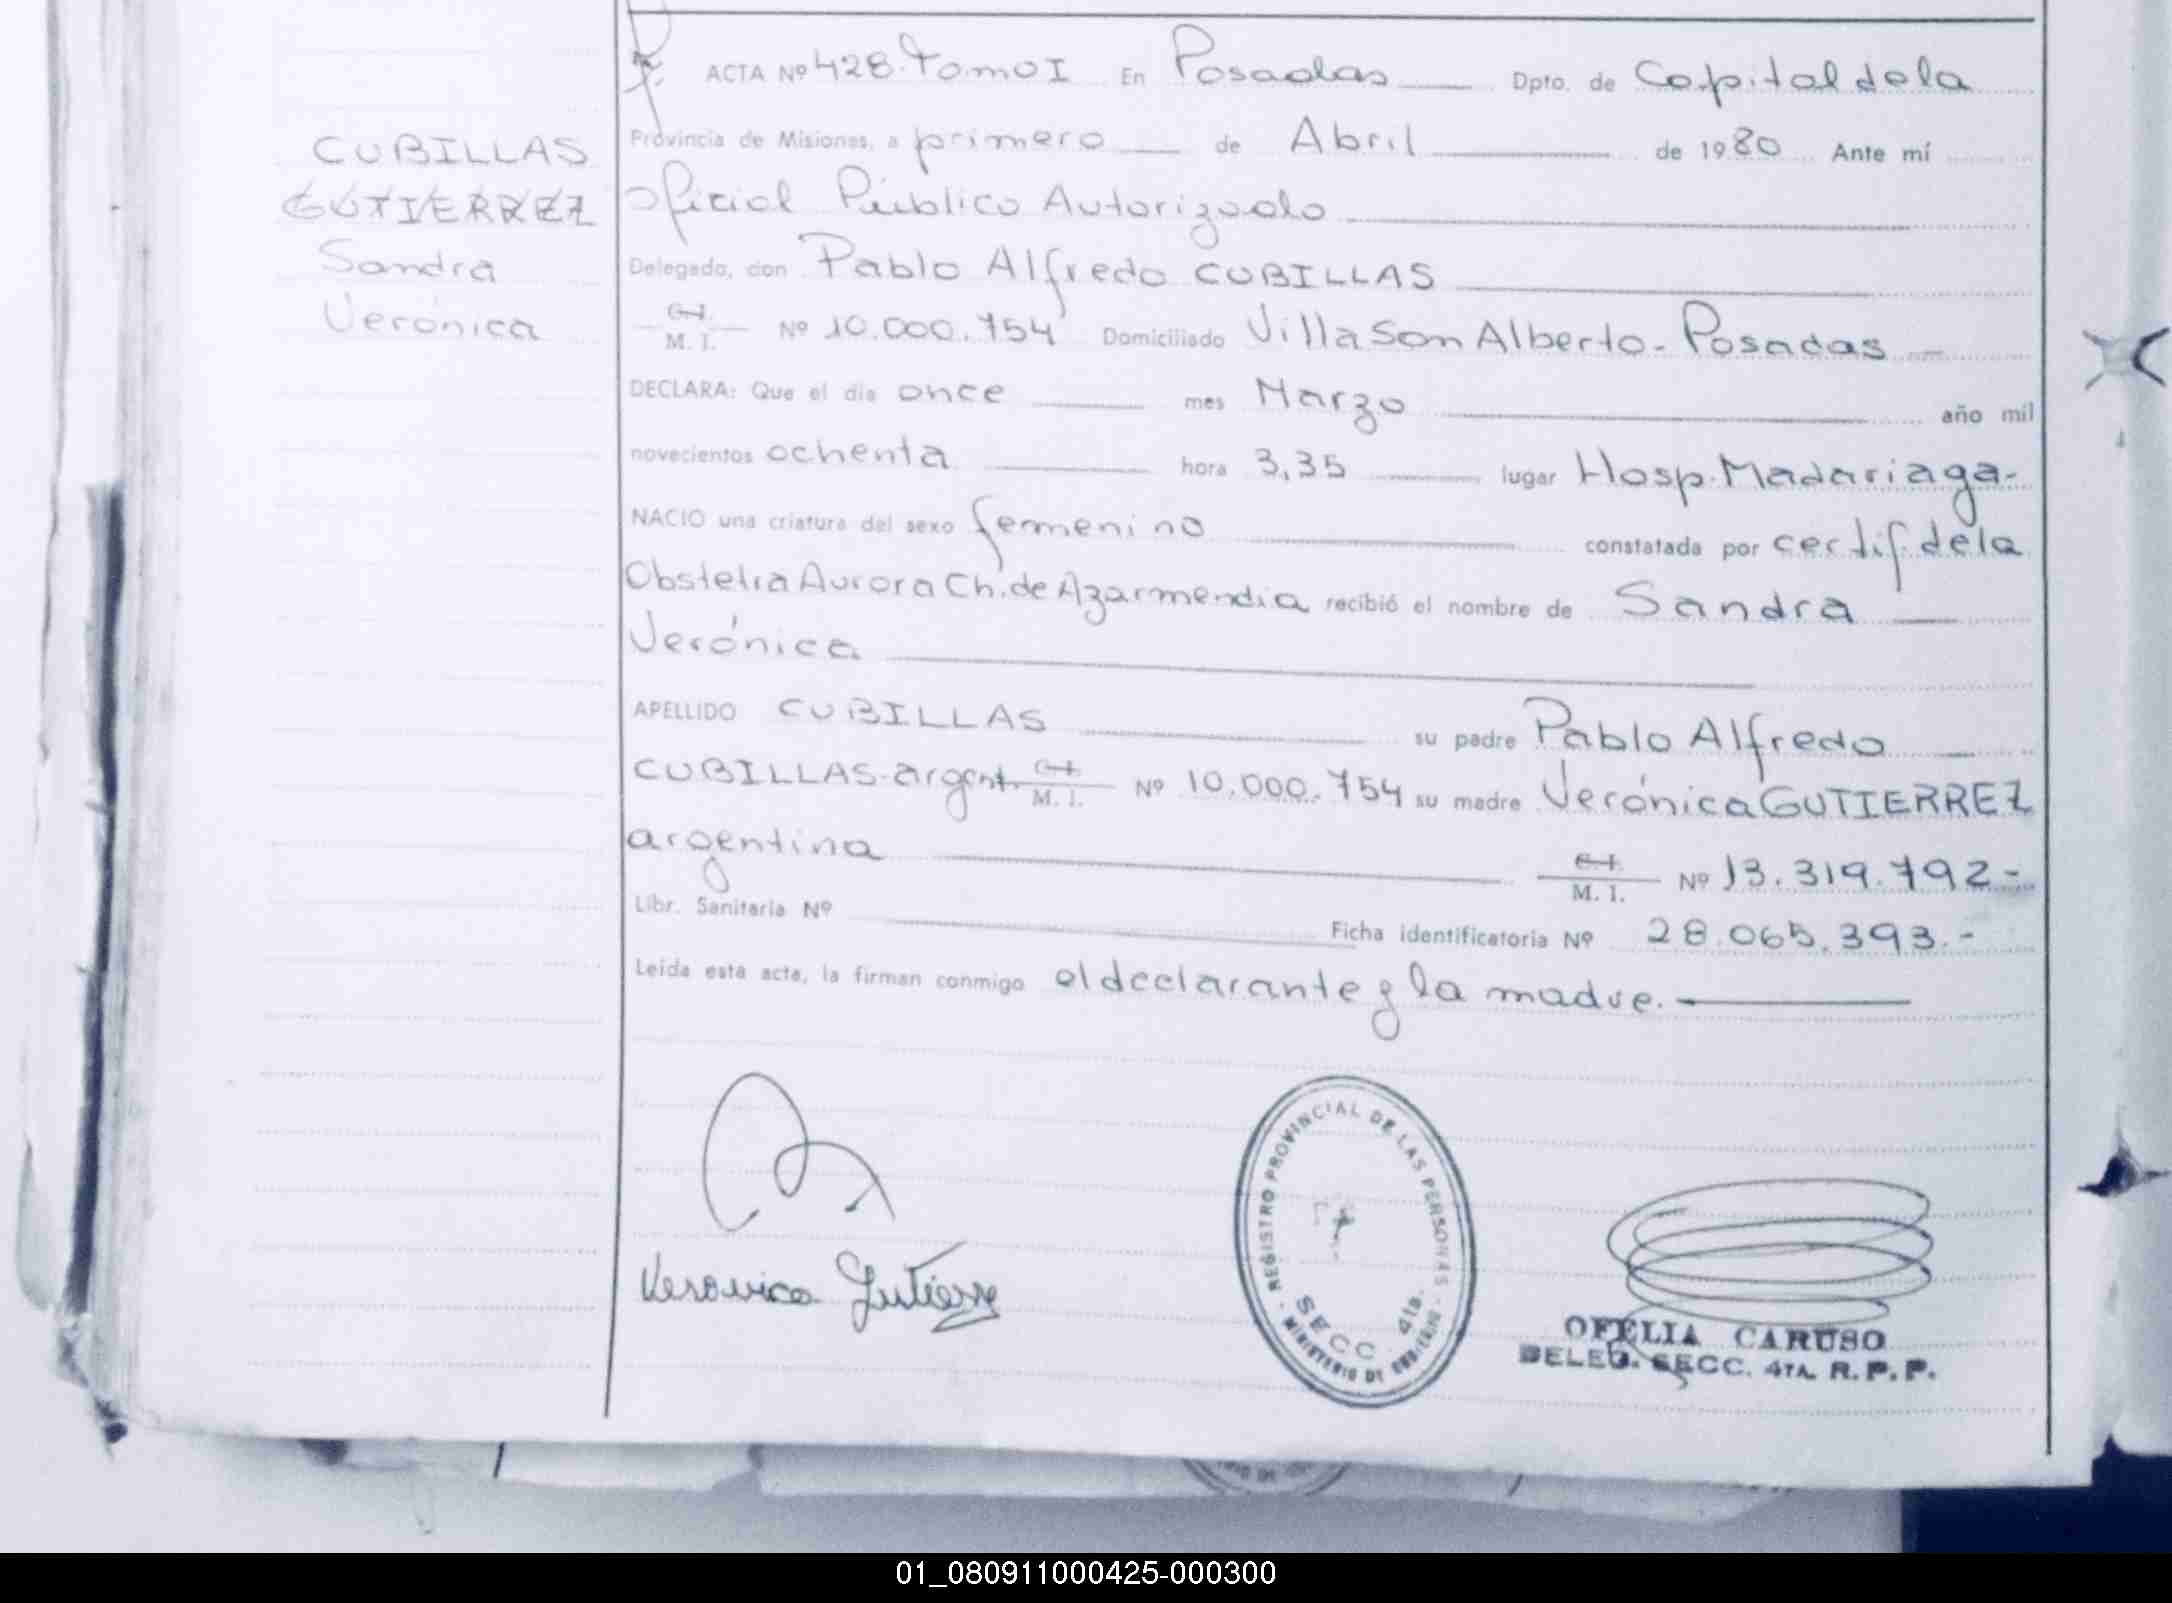 ACTA Nº 428. Tomo I En Posadas Dpto. de Capital de la
Provincia de Misiones, a primero de Abril de 1980 Ante mí
Oficial Público Autorizado
CUBILLAS
GUTIERREZ
Sandra
Verónica
Delegado, don Pablo Alfredo CUBILLAS
C.I. M. I. Nº 10.000.754 Domiciliado Villa San Alberto - Posadas
DECLARA: Que el día once mes Marzo año mil
novecientos ochenta hora 3,35 lugar Hosp. Madariaga-
NACIO una criatura del sexo femenino constatada por certif. de la
Obstetra Aurora Ch. de Azarmendia recibió el nombre de Sandra
Verónica
APELLIDO CUBILLAS su padre Pablo Alfredo
CUBILLAS-argent. C.I. M. I. Nº 10.000.754 su madre Verónica GUTIERREZ
argentina C.I. M. I. Nº 13.319.792-
Libr. Sanitaria Nº Ficha identificatoria Nº 28.065.393.-
Leída esta acta, la firman conmigo el declarante y la madre.
Veronica Gutierre
REGISTRO PROVINCIAL DE LAS PERSONAS - MINISTERIO DE GOBIERNO -
SECC. 4ta.
OFELIA CARUSO
DELEG. SECC. 4TA. R.P.P.
01_080911000425-000300